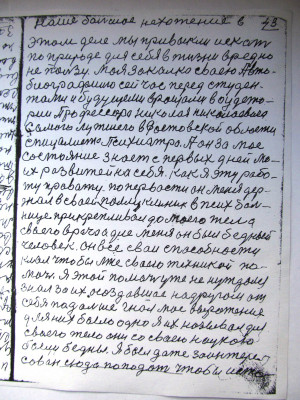 Наше большое нахотения в 43
этом деле мы привыкли искат
по природе для себя в жизни вредно
не ползу. Моя закалка своею Авто-
биографию сейчас перед студен-
тами и будущеми врачами в аудето-
рии Профессора николая николаевоча
самого лутшего в Ростовской области
специалиста Психиатра. Он за мое
состояние знает с первых дней мо-
их развитей на себя. как я эту рабо-
ту провожу. по первости он меня дер-
жал в своей поликлиник в псих бол-
нице прикрепивал до моего тела
своего врача а дле меня он был бедный
человек. он все сваи способности
клал чтобы мне своею техникой по-
моч. Я этой помощи уже не нуждался
знал за их
себя падалше гнал мое выротения
у меня было одно Я их называл для
своего тело они со своею наукою
были бедны. Я был даже заинтере-
сован сюда попадат чтобы